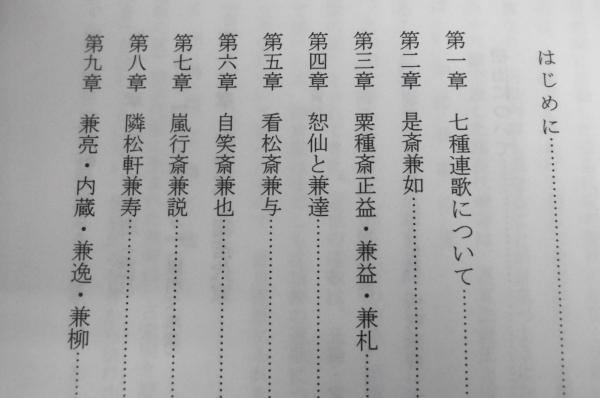 はじめに
第一章 七種連歌について
第二章 是斎兼如
第三章 栗種斎正益・兼益・兼札
第四章 恕仙と兼達
第五章 看松斎兼与
第六章 自笑斎兼也
第七章 嵐行斎兼説
第八章 隣松軒兼寿
第九章 兼亮・内蔵・兼逸・兼柳